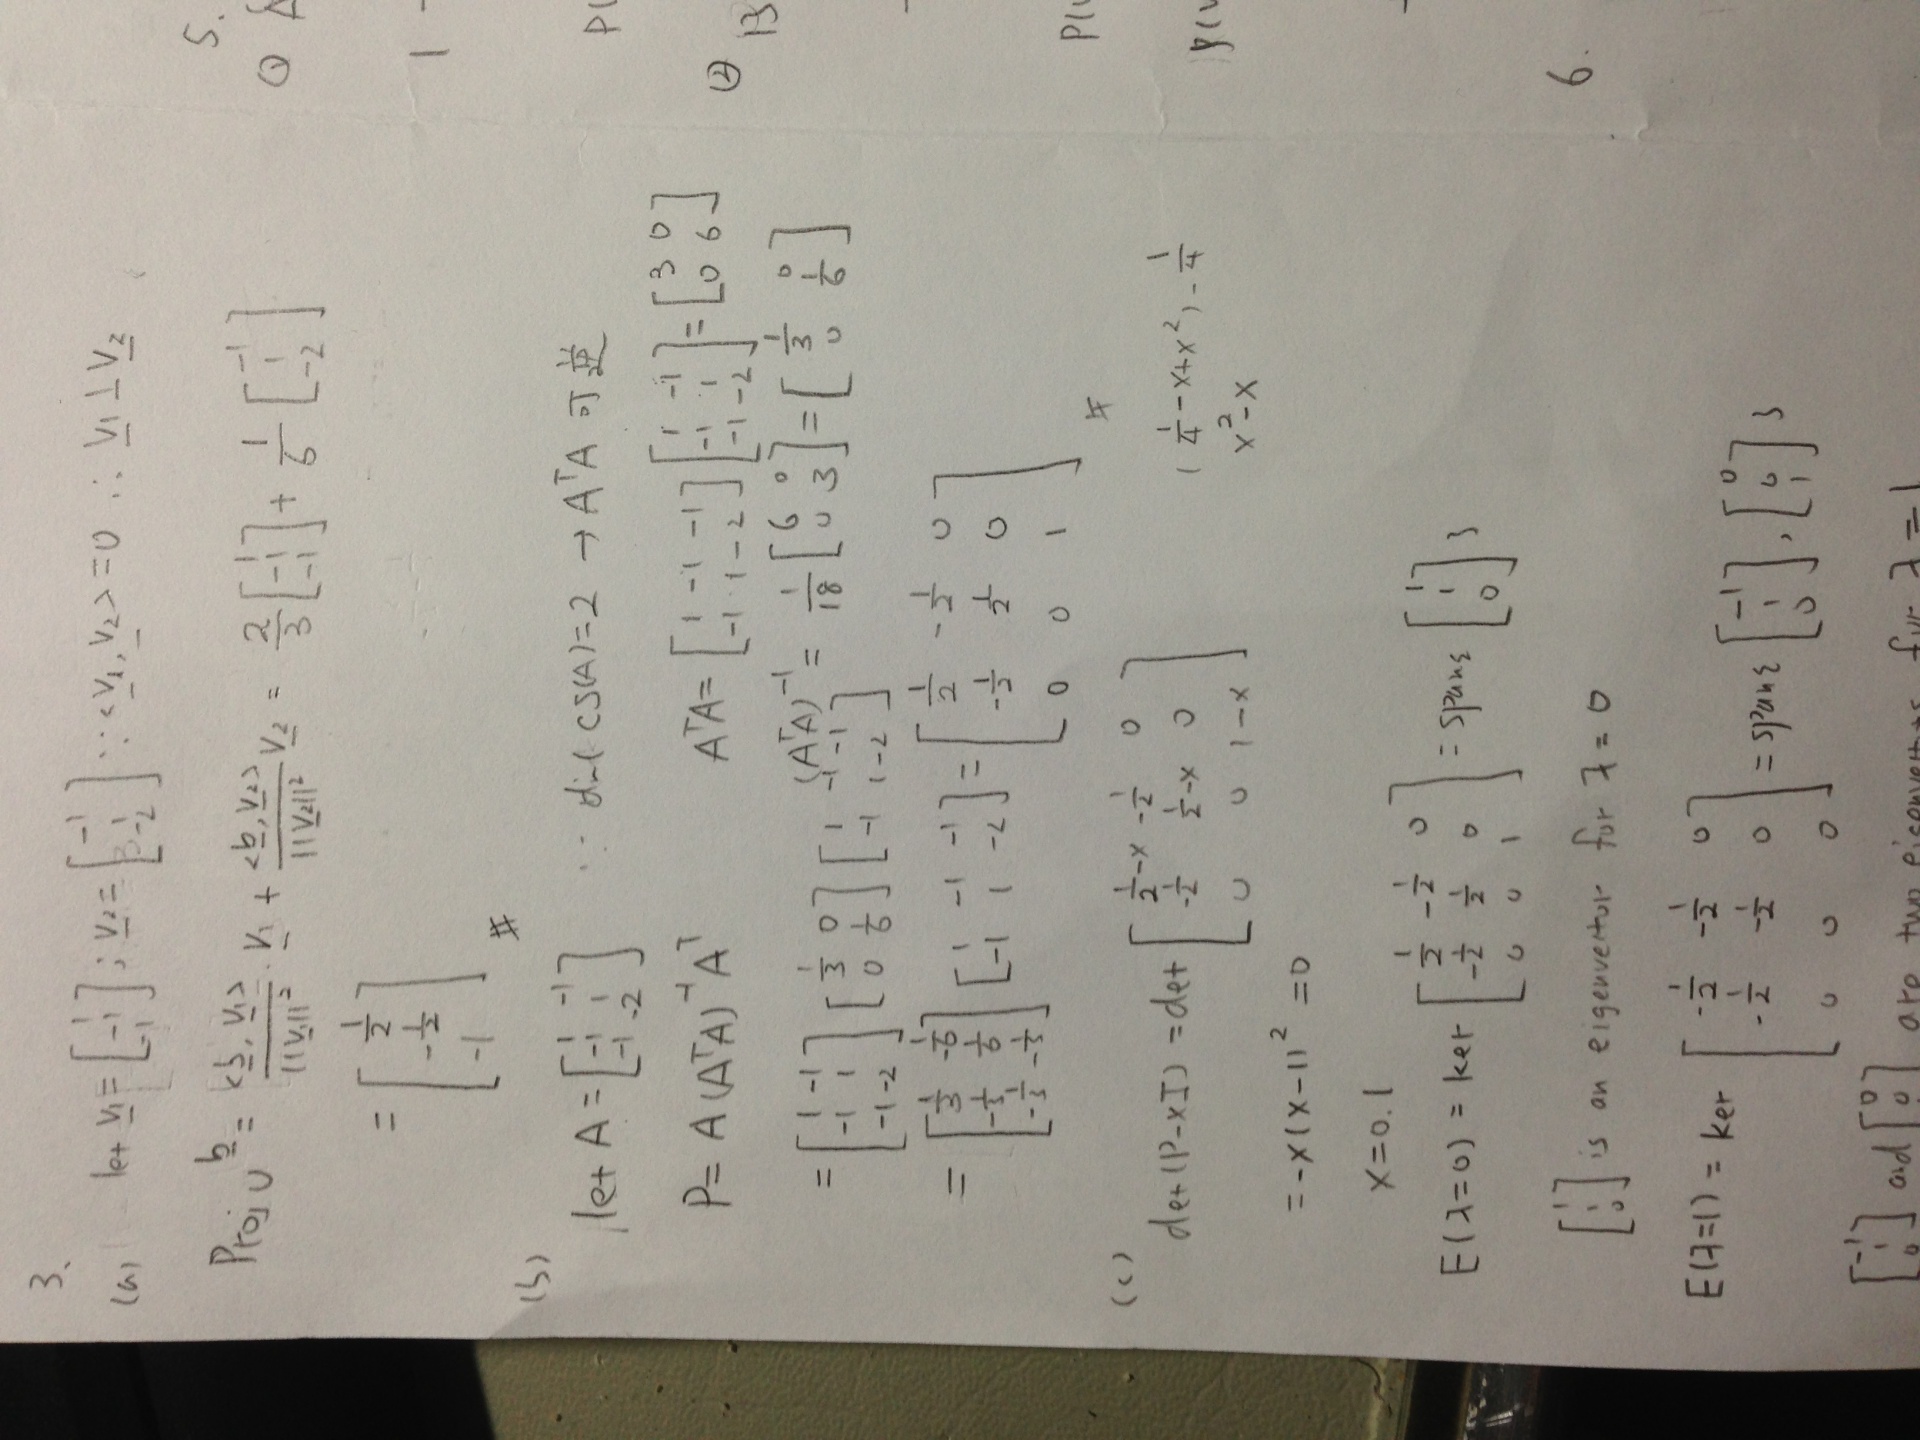 3.
(a) let v₁ = [1 -1 -1]; v₂ = [-1 1 -2] ∵ <v₁, v₂> = 0 ∴ v₁ ⊥ v₂
Proj_U b = <b, v₁>/||v₁||² · v₁ + <b, v₂>/||v₂||² v₂ = 2/3 [1 -1 -1] + 1/6 [-1 1 -2]
= [1/2 -1/2 -1] #
(b)
let A = [1 -1; -1 1; -1 -2] ∵ dim(CS(A)) = 2 → AᵀA 可逆
P = A(AᵀA)⁻¹Aᵀ AᵀA = [1 -1 -1; -1 1 -2] [1 -1; -1 1; -1 -2] = [3 0; 0 6]
(AᵀA)⁻¹ = 1/18 [6 0; 0 3] = [1/3 0; 0 1/6]
= [1 -1; -1 1; -1 -2] [1/3 0; 0 1/6] [1 -1 -1; -1 1 -2]
= [1/3 -1/6; -1/3 1/6; -1/3 -1/3] [1 -1 -1; -1 1 -2] = [1/2 -1/2 0; -1/2 1/2 0; 0 0 1] #
(c)
det(P-xI) = det [1/2-x -1/2 0; -1/2 1/2-x 0; 0 0 1-x] (1/4 -x+x²) - 1/4
x²-x
= -x(x-1)² = 0
x=0.1
E(λ=0) = ker [1/2 -1/2 0; -1/2 1/2 0; 0 0 1] = span{[1 1 0]}
[1 1 0] is an eigenvector for λ=0
E(λ=1) = ker [-1/2 -1/2 0; -1/2 -1/2 0; 0 0 0] = span{[-1 1 0], [0 0 1]}
[-1 1 0] and [0 0 are two eigenvectors for λ=1
5.
①
②
6.